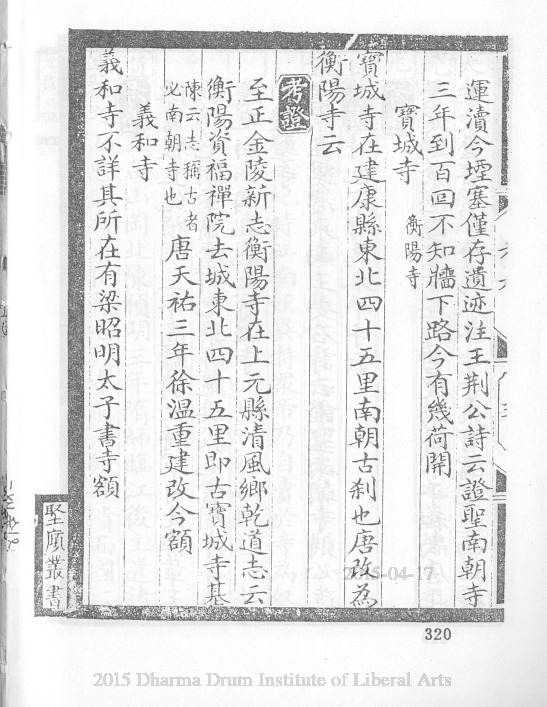 運瀆今堙塞僅存遺迹注王荆公詩云證聖南朝寺
三年到百回不知牆下路今有幾荷開
寶城寺 衡陽寺
寶城寺在建康縣東北四十五里南朝古刹也唐改為
衡陽寺云
考證
至正金陵新志衡陽寺在上元縣清風鄉乾道志云
衡陽資福禪院去城東北四十五里即古寶城寺基
陳云志稱古者
必南朝寺也
唐天祐三年徐温重建改今額
義和寺
義和寺不詳其所在有梁昭明太子書寺額
2015-04-17
320
2015 Dharma Drum Institute of Liberal Arts